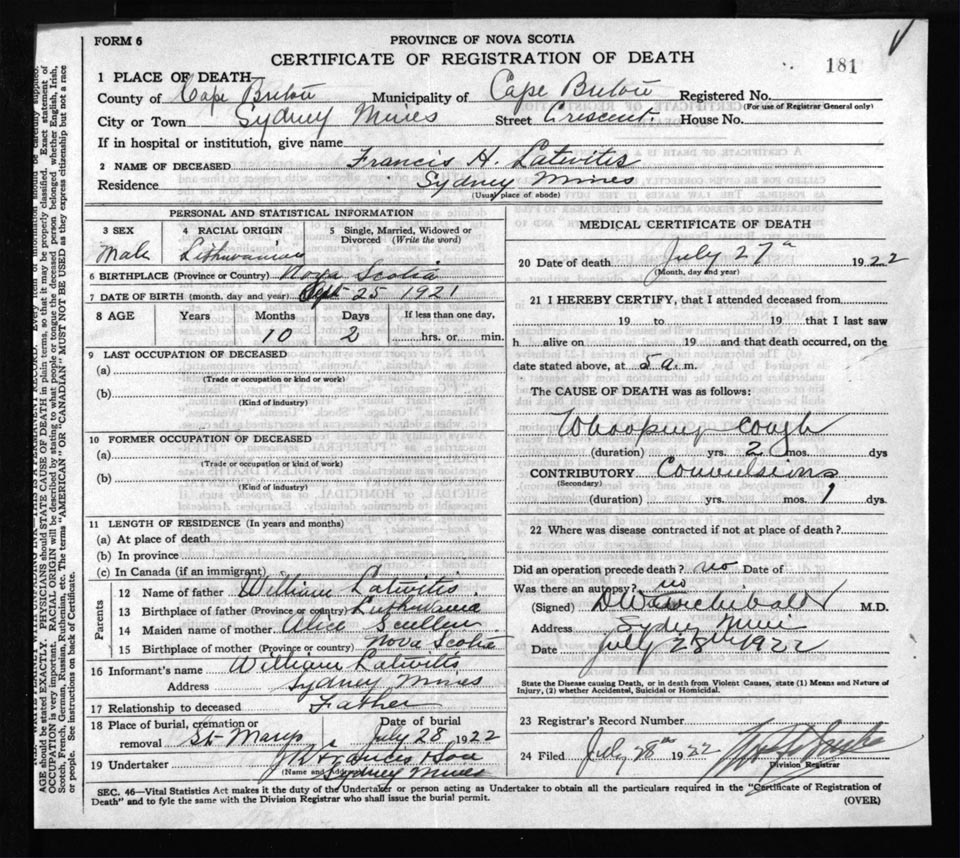 FORM 6
PROVINCE OF NOVA SCOTIA
CERTIFICATE OF REGISTRATION OF DEATH
181
1 PLACE OF DEATH
County of Cape Breton Municipality of Cape Breton Registered No.
(For use of Registrar General only)
City or Town Sydney Mines Street Crescent. House No.
If in hospital or institution, give name
2 NAME OF DECEASED Francis H. Latwitis
Residence Sydney Mines
(Usual place of abode)
PERSONAL AND STATISTICAL INFORMATION
3 SEX Male
4 RACIAL ORIGIN Lithuanian
5 Single, Married, Widowed or Divorced (Write the word)
6 BIRTHPLACE (Province or Country) Nova Scotia
7 DATE OF BIRTH (month, day and year) Sept 25 1921
8 AGE Years Months Days If less than one day,
10 2 hrs. or min.
9 LAST OCCUPATION OF DECEASED
(a)
(Trade or occupation or kind or work)
(b)
(Kind of industry)
10 FORMER OCCUPATION OF DECEASED
(a)
(Trade or occupation or kind or work)
(b)
(Kind of industry)
11 LENGTH OF RESIDENCE (In years and months)
(a) At place of death
(b) In province
(c) In Canada (if an immigrant)
Parents
12 Name of father William Latwitis
13 Birthplace of father (Province or country) Lithuania
14 Maiden name of mother Alice Scullen
15 Birthplace of mother (Province or country) Nova Scotia
16 Informant's name William Latwitis
Address Sydney Mines
17 Relationship to deceased Father
18 Place of burial, cremation or removal St Marys Date of burial July 28 1922
19 Undertaker J R Francis & Son
(Name and Address) Sydney Mines
MEDICAL CERTIFICATE OF DEATH
20 Date of death July 27th 1922
(Month, day and year)
21 I HEREBY CERTIFY, that I attended deceased from
19 to 19 that I last saw
h alive on 19 and that death occurred, on the
date stated above, at 5 a. m.
The CAUSE OF DEATH was as follows:
Whooping cough
(duration) yrs. 2 mos. dys
CONTRIBUTORY Convulsions
(Secondary)
(duration) yrs. mos. 1 dys.
22 Where was disease contracted if not at place of death?
Did an operation precede death? no Date of
Was there an autopsy? no
(Signed) Archibald M.D.
Address Sydney Mines
Date July 28th 1922
State the Disease causing Death, or in death from Violent Causes, state (1) Means and Nature of
Injury, (2) whether Accidental, Suicidal or Homicidal.
23 Registrar's Record Number
24 Filed July 28th 1922
Division Registrar
SEC. 46—Vital Statistics Act makes it the duty of the Undertaker or person acting as Undertaker to obtain all the particulars required in the "Certificate of Registration of
Death" and to fyle the same with the Division Registrar who shall issue the burial permit. (OVER)
AGE should be stated EXACTLY. PHYSICIANS should STATE CAUSE OF DEATH in plain terms, so that it may be properly classified. Exact statement of
OCCUPATION is very important. RACIAL ORIGIN will be described by stating to what people or tongue the deceased person belonged whether English, Irish,
Scotch, French, German, Russian, Ruthenian, etc. The terms "AMERICAN" OR "CANADIAN" MUST NOT BE USED as they express citizenship but not a race
or people. See instructions on back of Certificate.